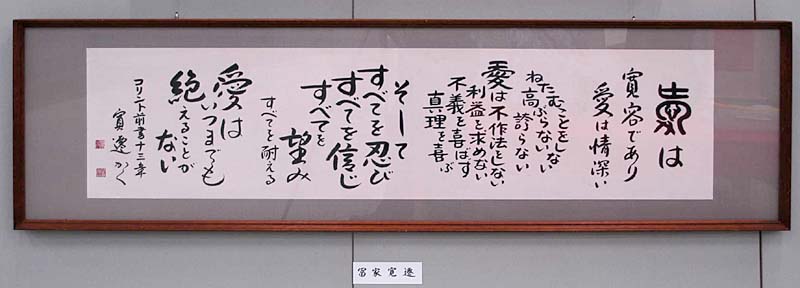 愛は
寛容であり
愛は情深い
ねたむことをしない
高ぶらない
誇らない
愛は不作法をしない
利益を求めない
不義を喜ばず
真理を喜ぶ
そして
すべてを忍び
すべてを信じ
すべてを
望み
すべてを耐える
愛は
いつまでも
絶えることが
ない
コリント前書十三章
寛遼かく
冨家寛遼